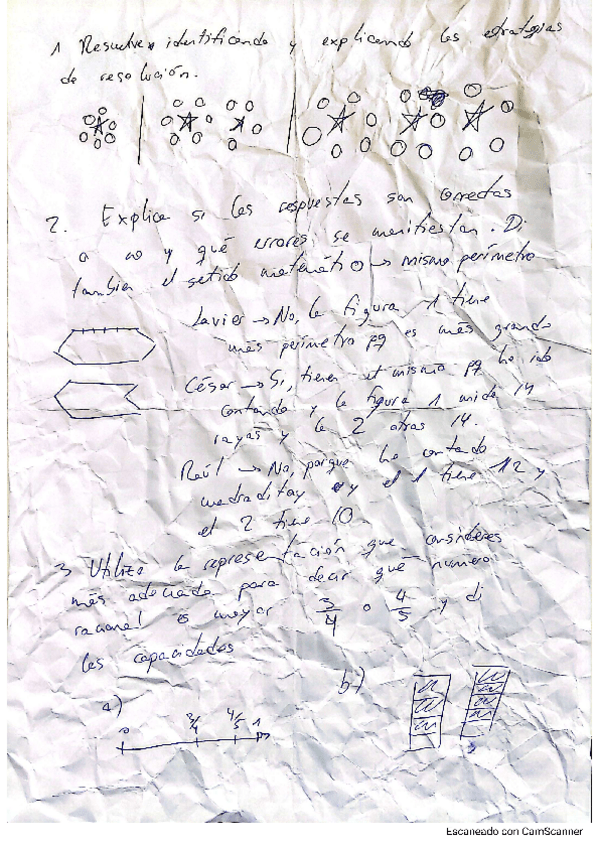 1 Resuelve identificando y explicando las estrategias
de resolución.
2. Explica si las respuestas son correctas
o no y qué errores se manifiestan. Di
también el setido matemático → mismo perímetro
Javier → No, la figura 1 tiene
más perímetro pq es más grande
César → Si, tienen el mismo pq ha ido
contando y la figura 1 mide 14
rayas y la 2 otras 14.
Raúl → No, porque he contado
cuadraditos y el 1 tiene 12 y
el 2 tiene 10
3 Utiliza la representación que consideres
más adecuada para decir que número
racional es mayor 3/4 o 4/5 y di
las capacidades
a) b)
0 3/4 4/5 1
Escaneado con CamScanner